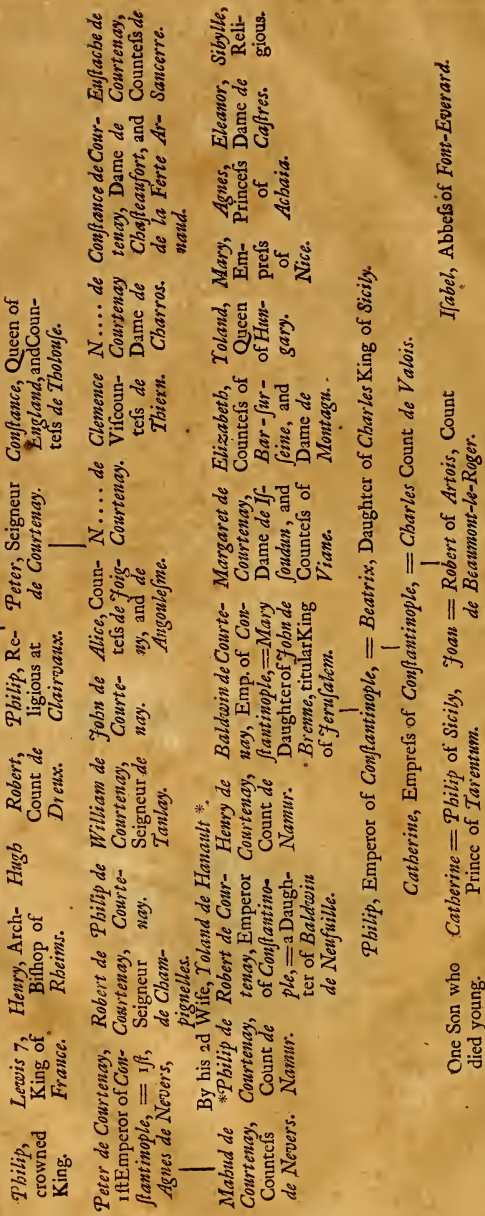 Philip, crowned King.
Lewis 7, King of France.
Henry, Arch-
Bishop of
Rheims.
Hugh
Robert,
Count de
Dreux.
Philip, Re-
ligious at
Clairvaux.
Peter, Seigneur
de Courtenay.
Constance, Queen of
England, and Coun-
tess de Tholouse.
Peter de Courtenay,
1st Emperor of Con-
stantinople, = 1st,
Agnes de Nevers,
Robert de
Courtenay,
Seigneur
de Cham-
pignelles.
Philip de
Courte-
nay.
William de
Courtenay,
Seigneur de
Tanlay.
John de
Courte-
nay.
Alice, Coun-
tess de Joig-
ny, and de
Angoulesme.
N.... de
Courtenay.
Clemence
Viscoun-
tess de
Thiern.
N.... de
Courtenay
Dame de
Charros.
Constance de Cour-
tenay, Dame de
Chasteaufort, and
de la Ferte Ar-
naud.
Eustache de
Courtenay,
Countess de
Sancerre.
By his 2d Wife, Yoland de Hanault *.
Mahud de
Courtenay,
Countess
de Nevers.
*Philip de
Courtenay,
Count de
Namur.
Robert de Cour-
tenay, Emperor
of Constantino-
ple, = a Daugh-
ter of Baldwin
de Neufuille.
Henry de
Courtenay,
Count de
Namur.
Baldwin de Courte-
nay, Emp. of Con-
stantinople, = Mary
Daughter of John de
Brenne, titular King
of Jerusalem.
Margaret de
Courtenay,
Dame de Is-
soudun, and
Countess of
Viane.
Elizabeth,
Countess of
Bar-sur-
seine, and
Dame de
Montagu.
Yoland,
Queen
of Hun-
gary.
Mary,
Em-
press
of
Nice.
Agnes,
Princess
of
Achaia.
Eleanor,
Dame de
Castres.
Sibylle,
Reli-
gious.
Philip, Emperor of Constantinople, = Beatrix, Daughter of Charles King of Sicily.
Catherine, Empress of Constantinople, = Charles Count de Valois.
One Son who
died young.
Catherine = Philip of Sicily,
Prince of Tarentum.
Joan = Robert of Artois, Count
de Beaumont-le-Roger.
Isabel, Abbess of Font-Everard.